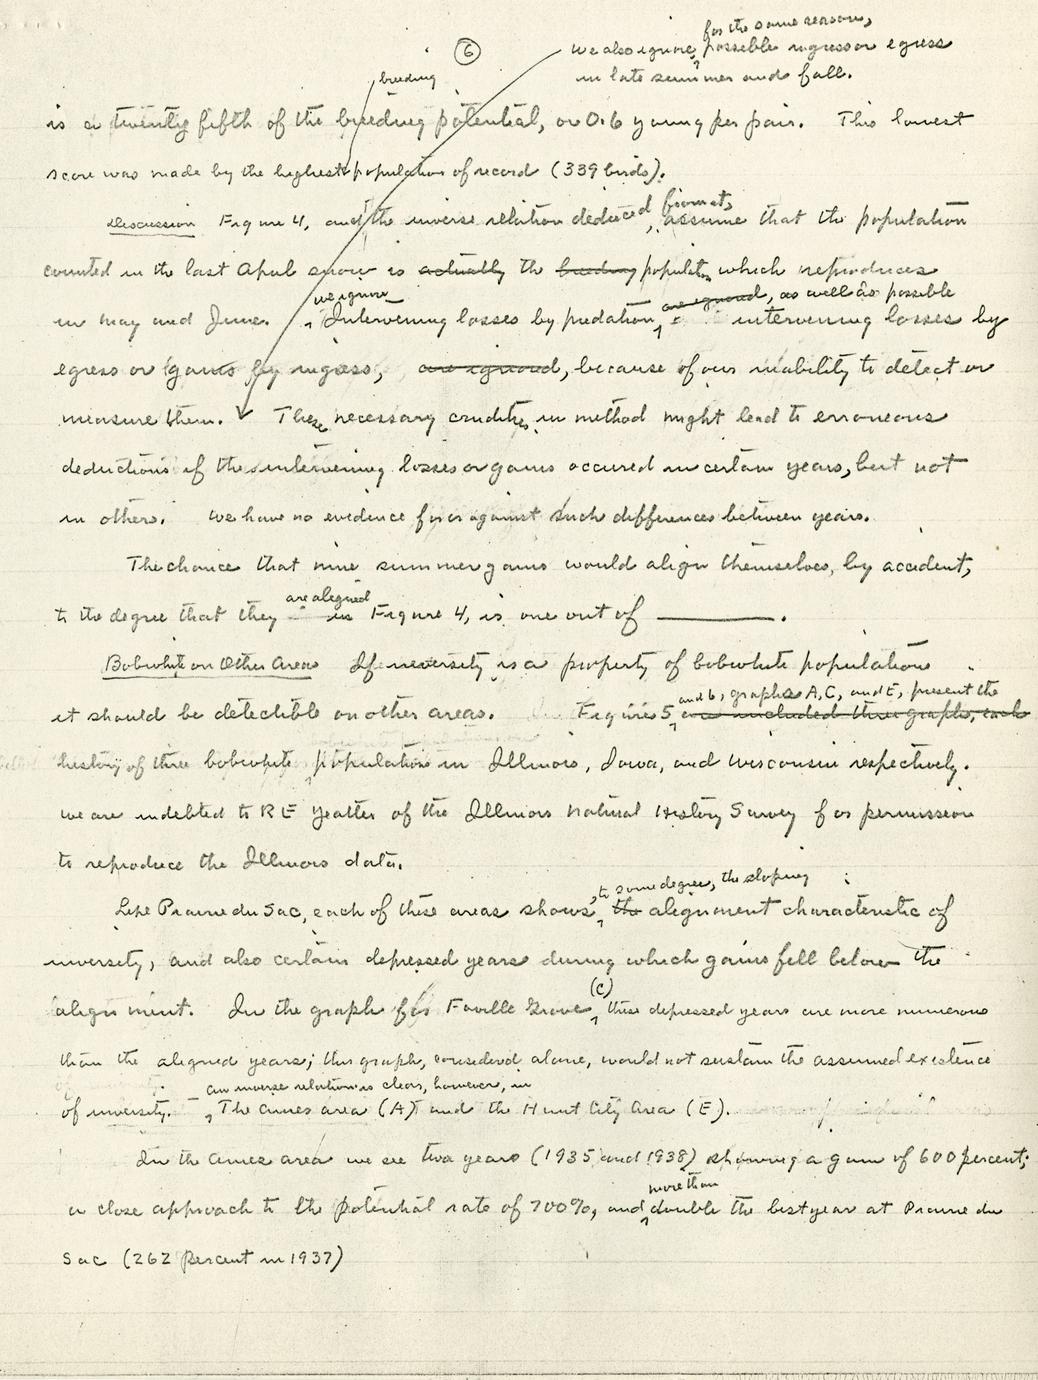 for the same reason,
6 we also ignore possible ingress or egress
in late summer and fall.
breeding
is a twenty fifth of the breeding potential, or 0.6 young per pair. This lowest
score was made by the highest population of record (339 birds).
Discussion Figure 4, and the inverse relation deduced from it, assume that the population
counted in the last April snow is actually the breeding population which reproduces
we ignore are ignored, as well as possible
in May and June. Intervening losses by predation intervening losses by
egress or gains by ingress, are ignored, because of our inability to detect or
measure them. These necessary crudities in method might lead to erroneous
deductions if the intervening losses or gains occured in certain years, but not
in others. We have no evidence for or against such differences between years.
The chance that nine summer gains would align themselves, by accident,
are aligned
to the degree that they in Figure 4, is one out of ______.
Bobwhite on Other Areas If inversity is a property of bobwhite populations
and 6, graphs A, C, and E, present the
it should be detectible on other areas. Figures 5 are included three graphs, each
history of three bobwhite populations in Illinois, Iowa, and Wisconsin respectively.
We are indebted to R E Yeatter of the Illinois Natural History Survey for permission
to reproduce the Illinois data.
to some degree, the sloping
Like Prairie du Sac, each of these areas shows the alignment characteristic of
inversity, and also certain depressed years during which gains fell below the
(C)
alignment. In the graph for Faville Grove these depressed years are more numerous
than the aligned years; this graph, considered alone, would not sustain the assumed existence
an inverse relation is clear, however, in
of inversity. The Ames area (A) and the Hunt City Area (E).
In the Ames area we see two years (1935 and 1938) showing a gain of 600 percent;
more than
a close approach to the potential rate of 700%, and double the best year at Prairie du
Sac (262 percent in 1937)